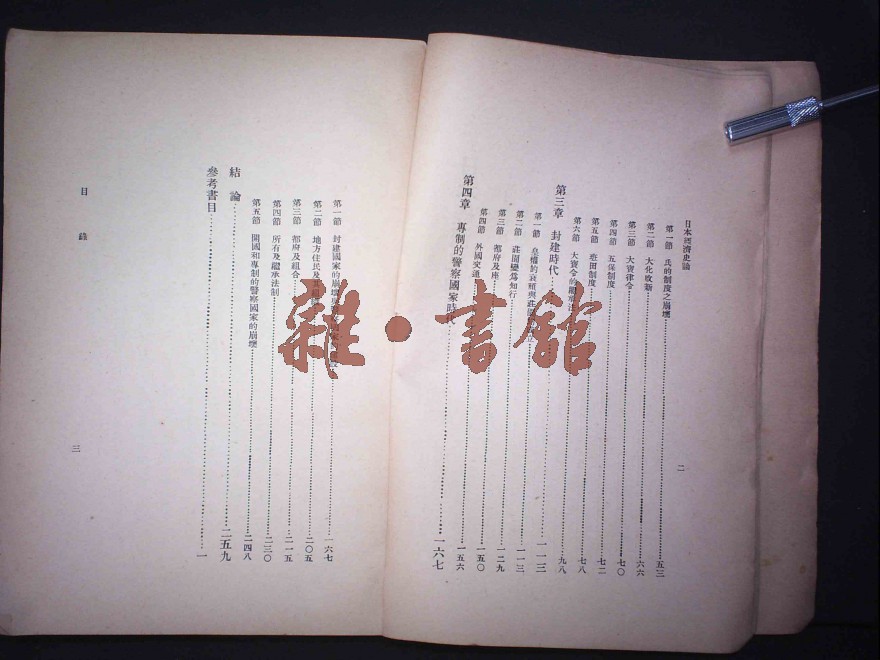 日本經濟史論
第一節 氏的制度之崩壞 五三
第二節 大化改新 六六
第三節 大寶律令 七〇
第四節 五保制度 七二
第五節 班田制度 七八
第六節 大寶令的繼承 九八
第三章 封建時代 一一三
第一節 皇權的衰頹與莊園
第二節 莊園變爲知行 一一三
第三節 都府及座 一二九
第四節 外國交通 一五〇
一五六
第四章 專制的警察國家時代 一六七
二
第一節 封建國家的崩壞 一六七
第二節 地方住民及其組 二〇五
第三節 都府及組合 二一五
第四節 所有及繼承法制 二三〇
第五節 開國和專制的警察國家的崩壞 二四八
結論 二五九
參考書目 一
目錄
三
雜·書館